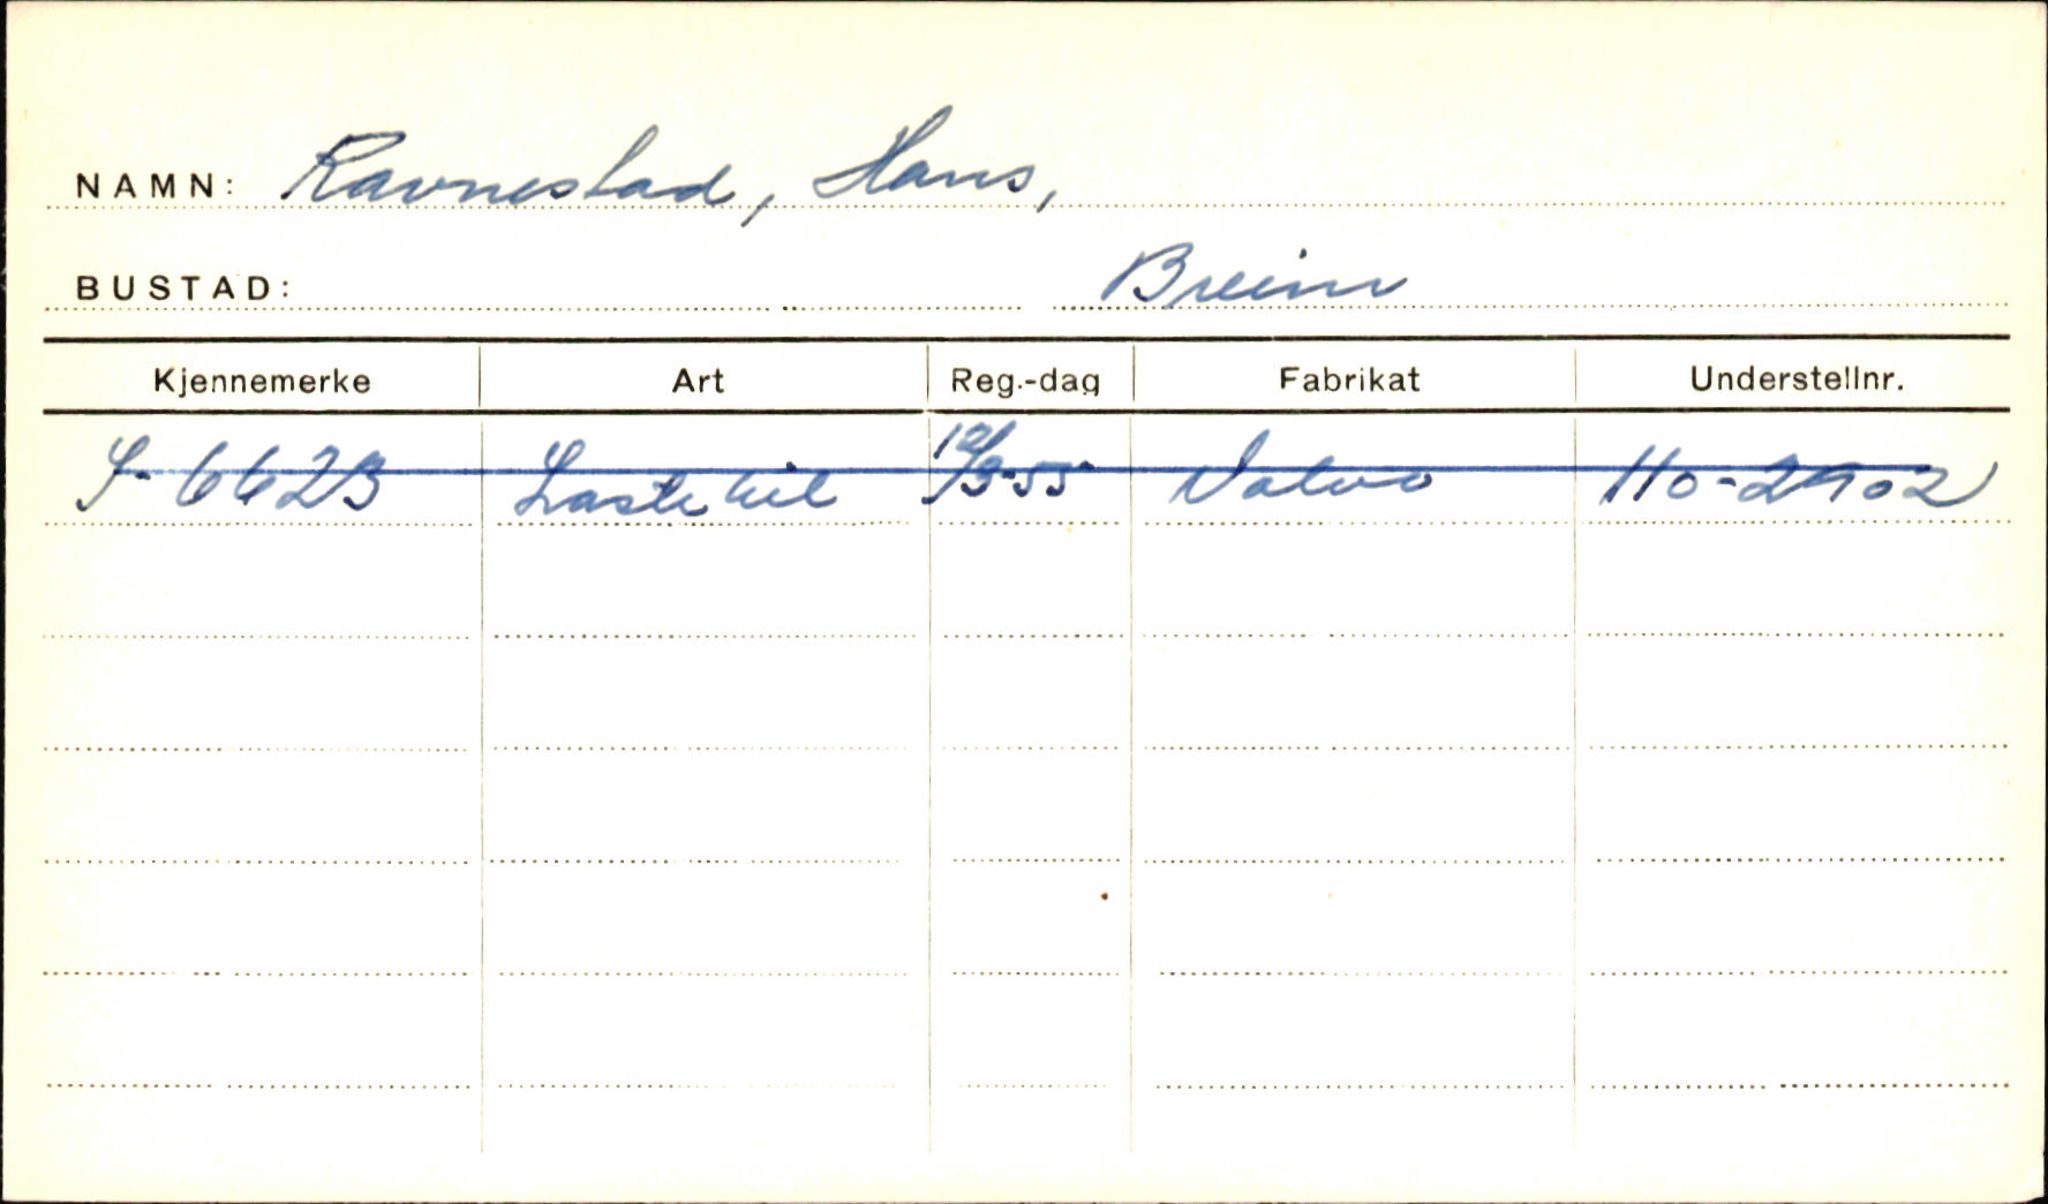 NAMN: Ravnestad, Hans,
BUSTAD: Breim
Kjennemerke Art Reg.-dag Fabrikat Understellnr.
S-6623 Lastebil 12/3-55 Volvo 110-2902